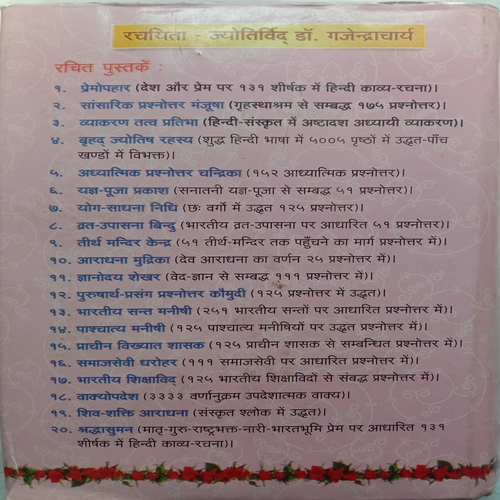 रचयिता - ज्योतिर्विद् डॉ. गजेन्द्राचार्य
रचित पुस्तकें :
१. प्रेमोपहार (देश और प्रेम पर १३१ शीर्षक में हिन्दी काव्य-रचना)।
२. सांसारिक प्रश्नोत्तर मंजूषा (गृहस्थाश्रम से सम्बद्ध १७५ प्रश्नोत्तर)।
३. व्याकरण तत्व प्रतिभा (हिन्दी-संस्कृत में अष्टादश अध्यायी व्याकरण)।
४. बृहद् ज्योतिष रहस्य (शुद्ध हिन्दी भाषा में ५००५ पृष्ठों में उद्धृत-पाँच
खण्डों में विभक्त)।
५. अध्यात्मिक प्रश्नोत्तर चन्द्रिका (१५२ आध्यात्मिक प्रश्नोत्तर)।
६. यज्ञ-पूजा प्रकाश (सनातनी यज्ञ-पूजा से सम्बद्ध ५१ प्रश्नोत्तर)।
७. योग-साधना निधि (छः वर्गो में उद्धृत १२५ प्रश्नोत्तर)।
८. व्रत-उपासना बिन्दु (भारतीय व्रत-उपासना पर आधारित ५१ प्रश्नोत्तर)।
९. तीर्थ मन्दिर केन्द्र (५१ तीर्थ-मन्दिर तक पहुँचने का मार्ग प्रश्नोत्तर में)।
१०. आराधना मुद्रिका (देव आराधना का वर्णन २५ प्रश्नोत्तर में)।
११. ज्ञानोदय शेखर (वेद-ज्ञान से सम्बद्ध १११ प्रश्नोत्तर)।
१२. पुरुषार्थ-प्रसंग प्रश्नोत्तर कौमुदी (१२५ प्रश्नोत्तर में उद्धृत)।
१३. भारतीय सन्त मनीषी (२५१ भारतीय सन्तों पर आधारित प्रश्नोत्तर में)।
१४. पाश्चात्य मनीषी (१२५ पाश्चात्य मनीषियों पर उद्धृत प्रश्नोत्तर में)।
१५. प्राचीन विख्यात शासक (१२५ प्राचीन शासक से सम्बन्धित प्रश्नोत्तर में)।
१६. समाजसेवी धरोहर (१११ समाजसेवी पर आधारित प्रश्नोत्तर में)।
१७. भारतीय शिक्षाविद् (१२५ भारतीय शिक्षाविदों से संबद्ध प्रश्नोत्तर में)।
१८. वाक्योपदेश (३३३३ वर्णानुक्रम उपदेशात्मक वाक्य)।
१९. शिव-शक्ति आराधना (संस्कृत श्लोक में उद्धृत)।
२०. श्रद्धासुमन (मातृ-गुरु-राष्ट्रभक्त-नारी-भारतभूमि प्रेम पर आधारित १३१
शीर्षक में हिन्दी काव्य-रचना)।